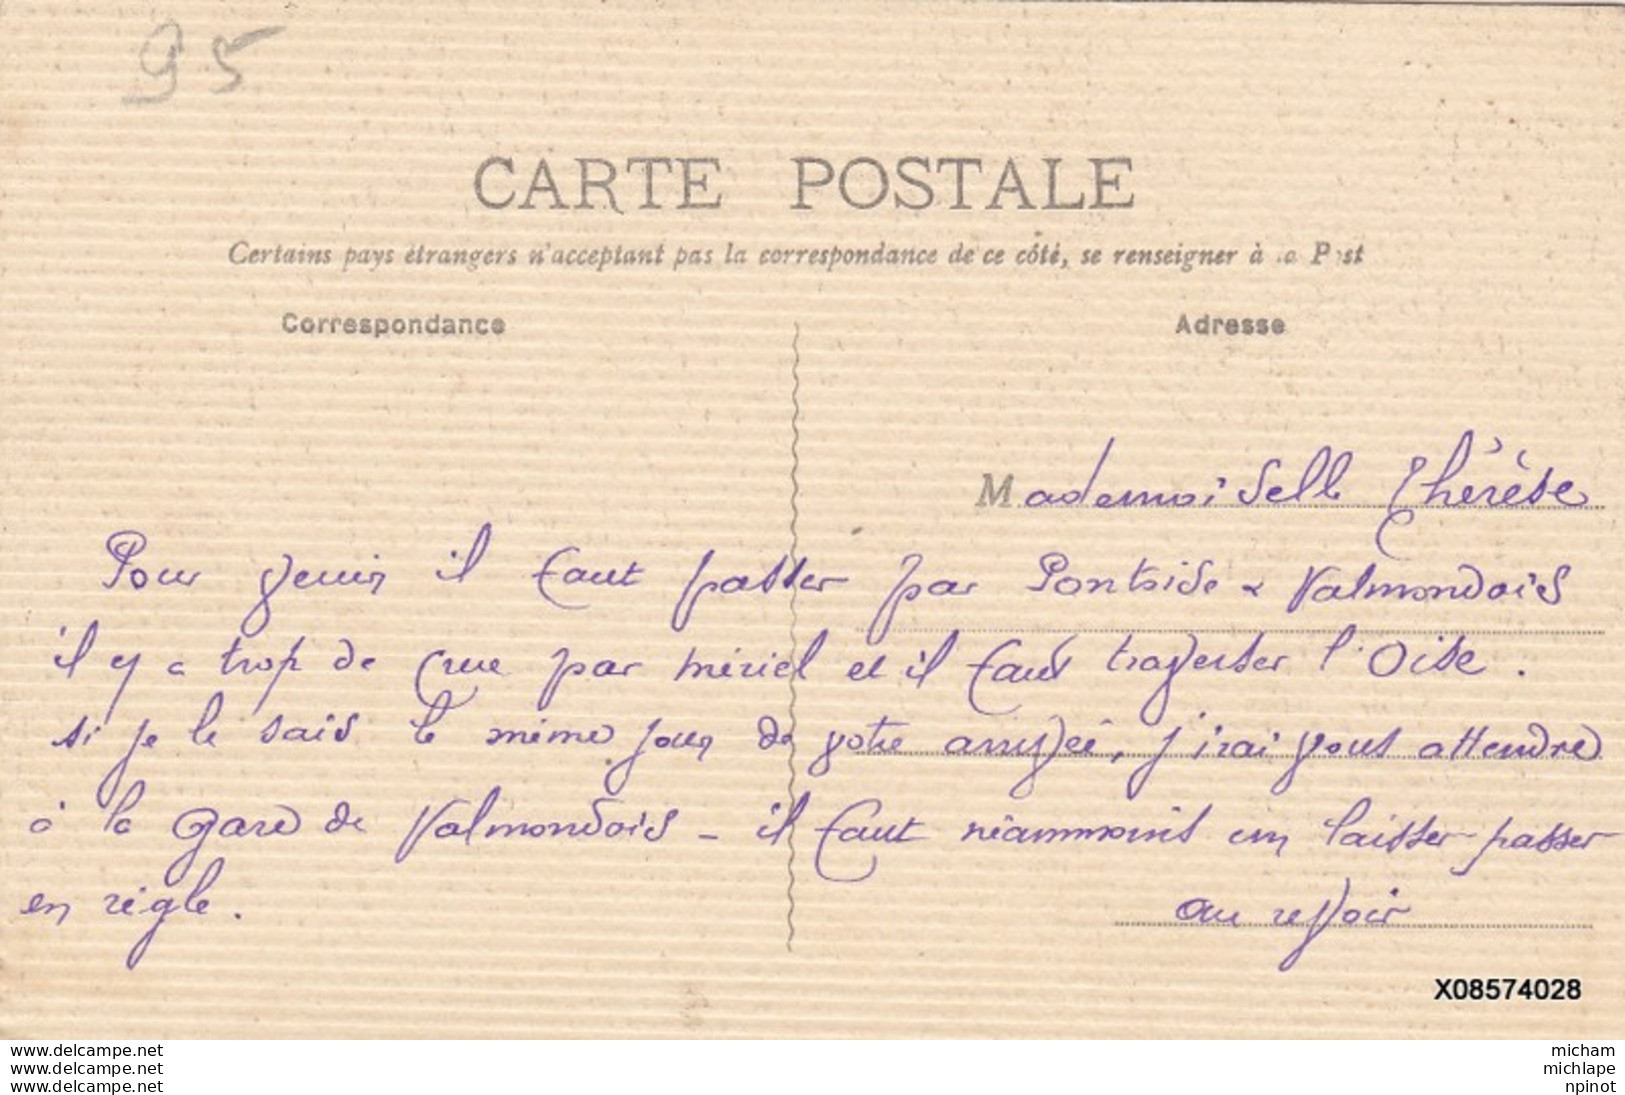 95
CARTE POSTALE
Certains pays étrangers n'acceptant pas la correspondance de ce côté, se renseigner à la Post
Correspondance
Adresse
Mademoiselle Thérèse
Pour venir il faut passer par Pontoise & Valmondois
il y a trop de crue par Mériel et il faut traverser l'Oise.
si je le sais le même jour de votre arrivée, j'irai vous attendre
à la gare de Valmondois - il faut néanmoins un laisser-passer
en règle.
au revoir
X08574028
www.delcampe.net
www.delcampe.net
www.delcampe.net
micham
michlape
npinot